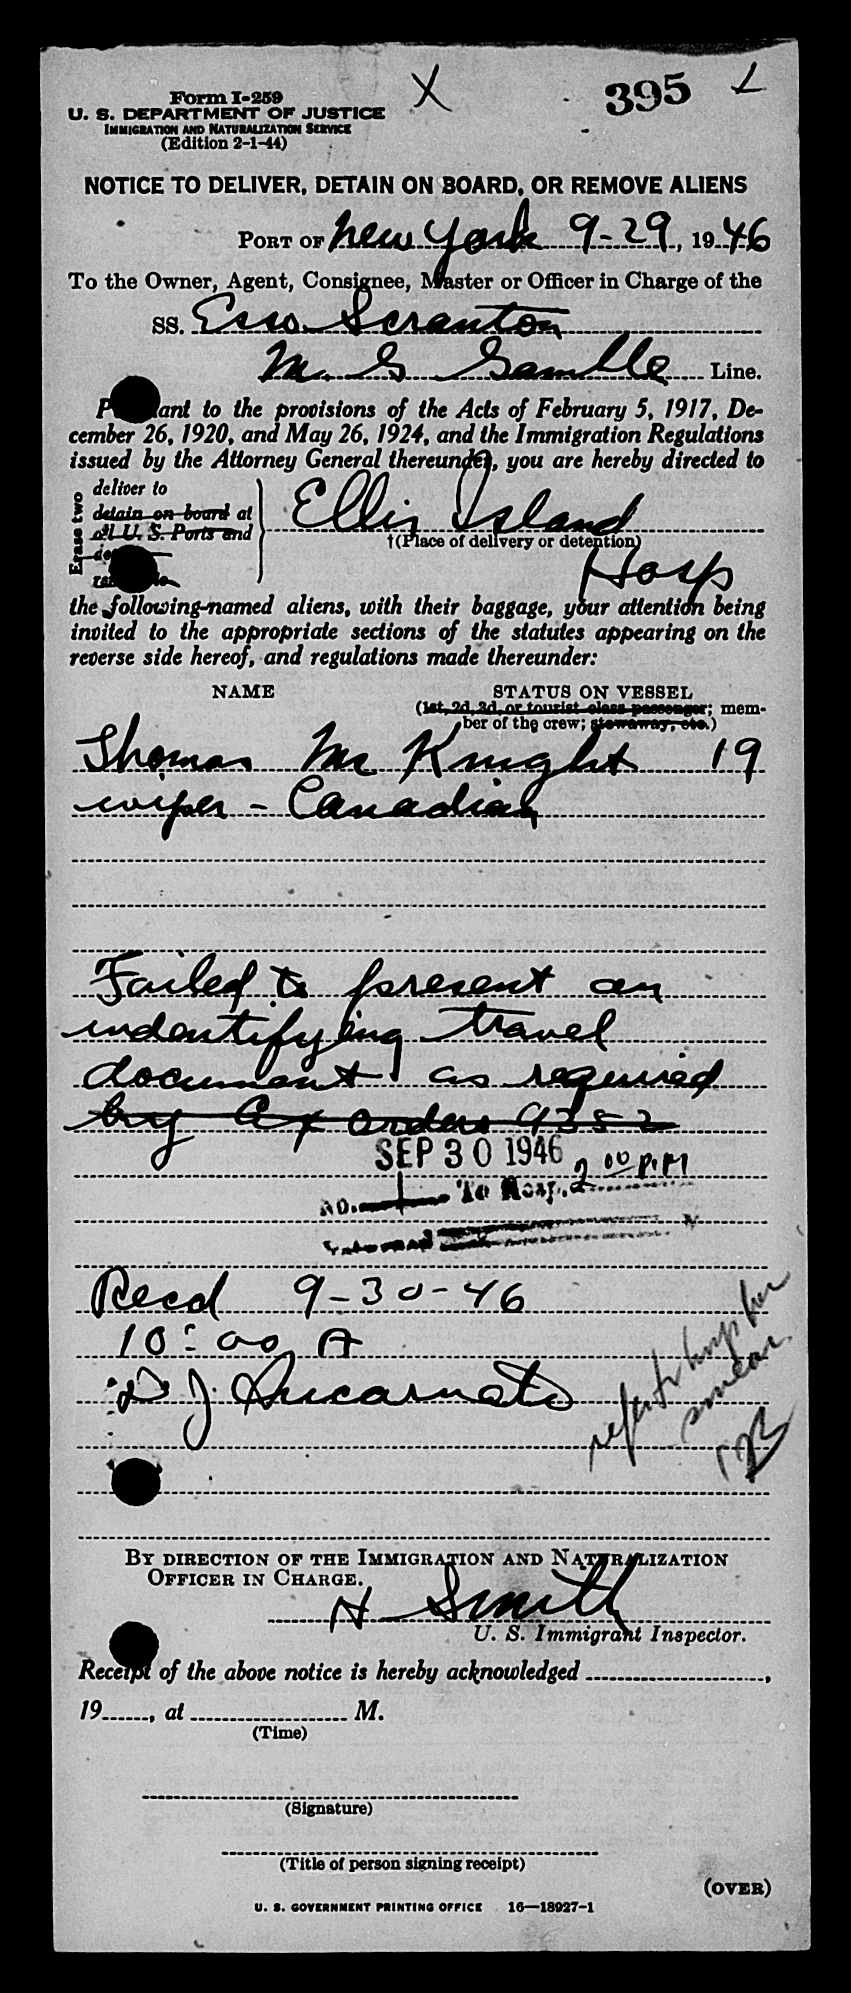 Form I-259
X
395
U. S. DEPARTMENT OF JUSTICE
IMMIGRATION AND NATURALIZATION SERVICE
(Edition 2-1-44)
NOTICE TO DELIVER, DETAIN ON BOARD, OR REMOVE ALIENS
PORT OF New York 9-29, 1946
To the Owner, Agent, Consignee, Master or Officer in Charge of the
SS. Esso Scranton
M. G Gamble Line.
P ant to the provisions of the Acts of February 5, 1917, De-
cember 26, 1920, and May 26, 1924, and the Immigration Regulations
issued by the Attorney General thereunder, you are hereby directed to
Erase two
deliver to
detain on board at
all U. S. Ports and
Ellis Island
†(Place of delivery or detention)
Hosp
the following-named aliens, with their baggage, your attention being
invited to the appropriate sections of the statutes appearing on the
reverse side hereof, and regulations made thereunder:
NAME STATUS ON VESSEL
(1st, 2d, 3d, or tourist class passenger; mem-
ber of the crew; stowaway, etc.)
Thomas Mc Knight 19
wiper - Canadian
Failed to present an
indentifying travel
document as required
by Ex orders 9352
SEP 30 1946 2 00 P.M
To Hosp.
Recd 9-30-46
10:00 A
D J Incarnato
refer to hosp for
smear
By DIRECTION OF THE IMMIGRATION AND NATURALIZATION
OFFICER IN CHARGE.
H Smith
U. S. Immigrant Inspector.
Receipt of the above notice is hereby acknowledged ,
19 , at M.
(Time)
(Signature)
(Title of person signing receipt)
(OVER)
U. S. GOVERNMENT PRINTING OFFICE 16—18927-1